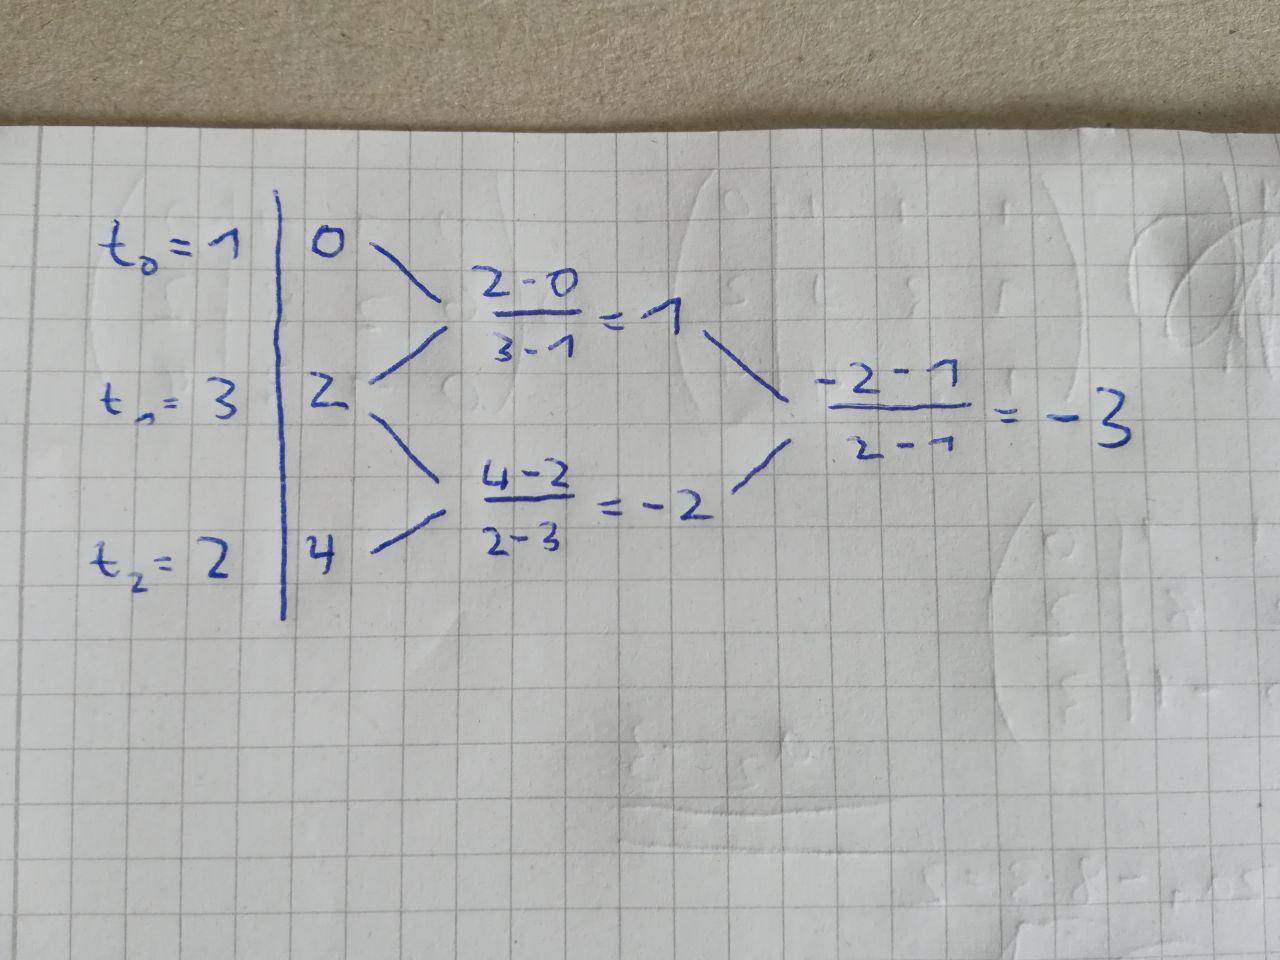 t₀ = 1 | 0
(2 - 0)/(3 - 1) = 1
t₁ = 3 | 2
(-2 - 1)/(2 - 1) = -3
(4 - 2)/(2 - 3) = -2
t₂ = 2 | 4